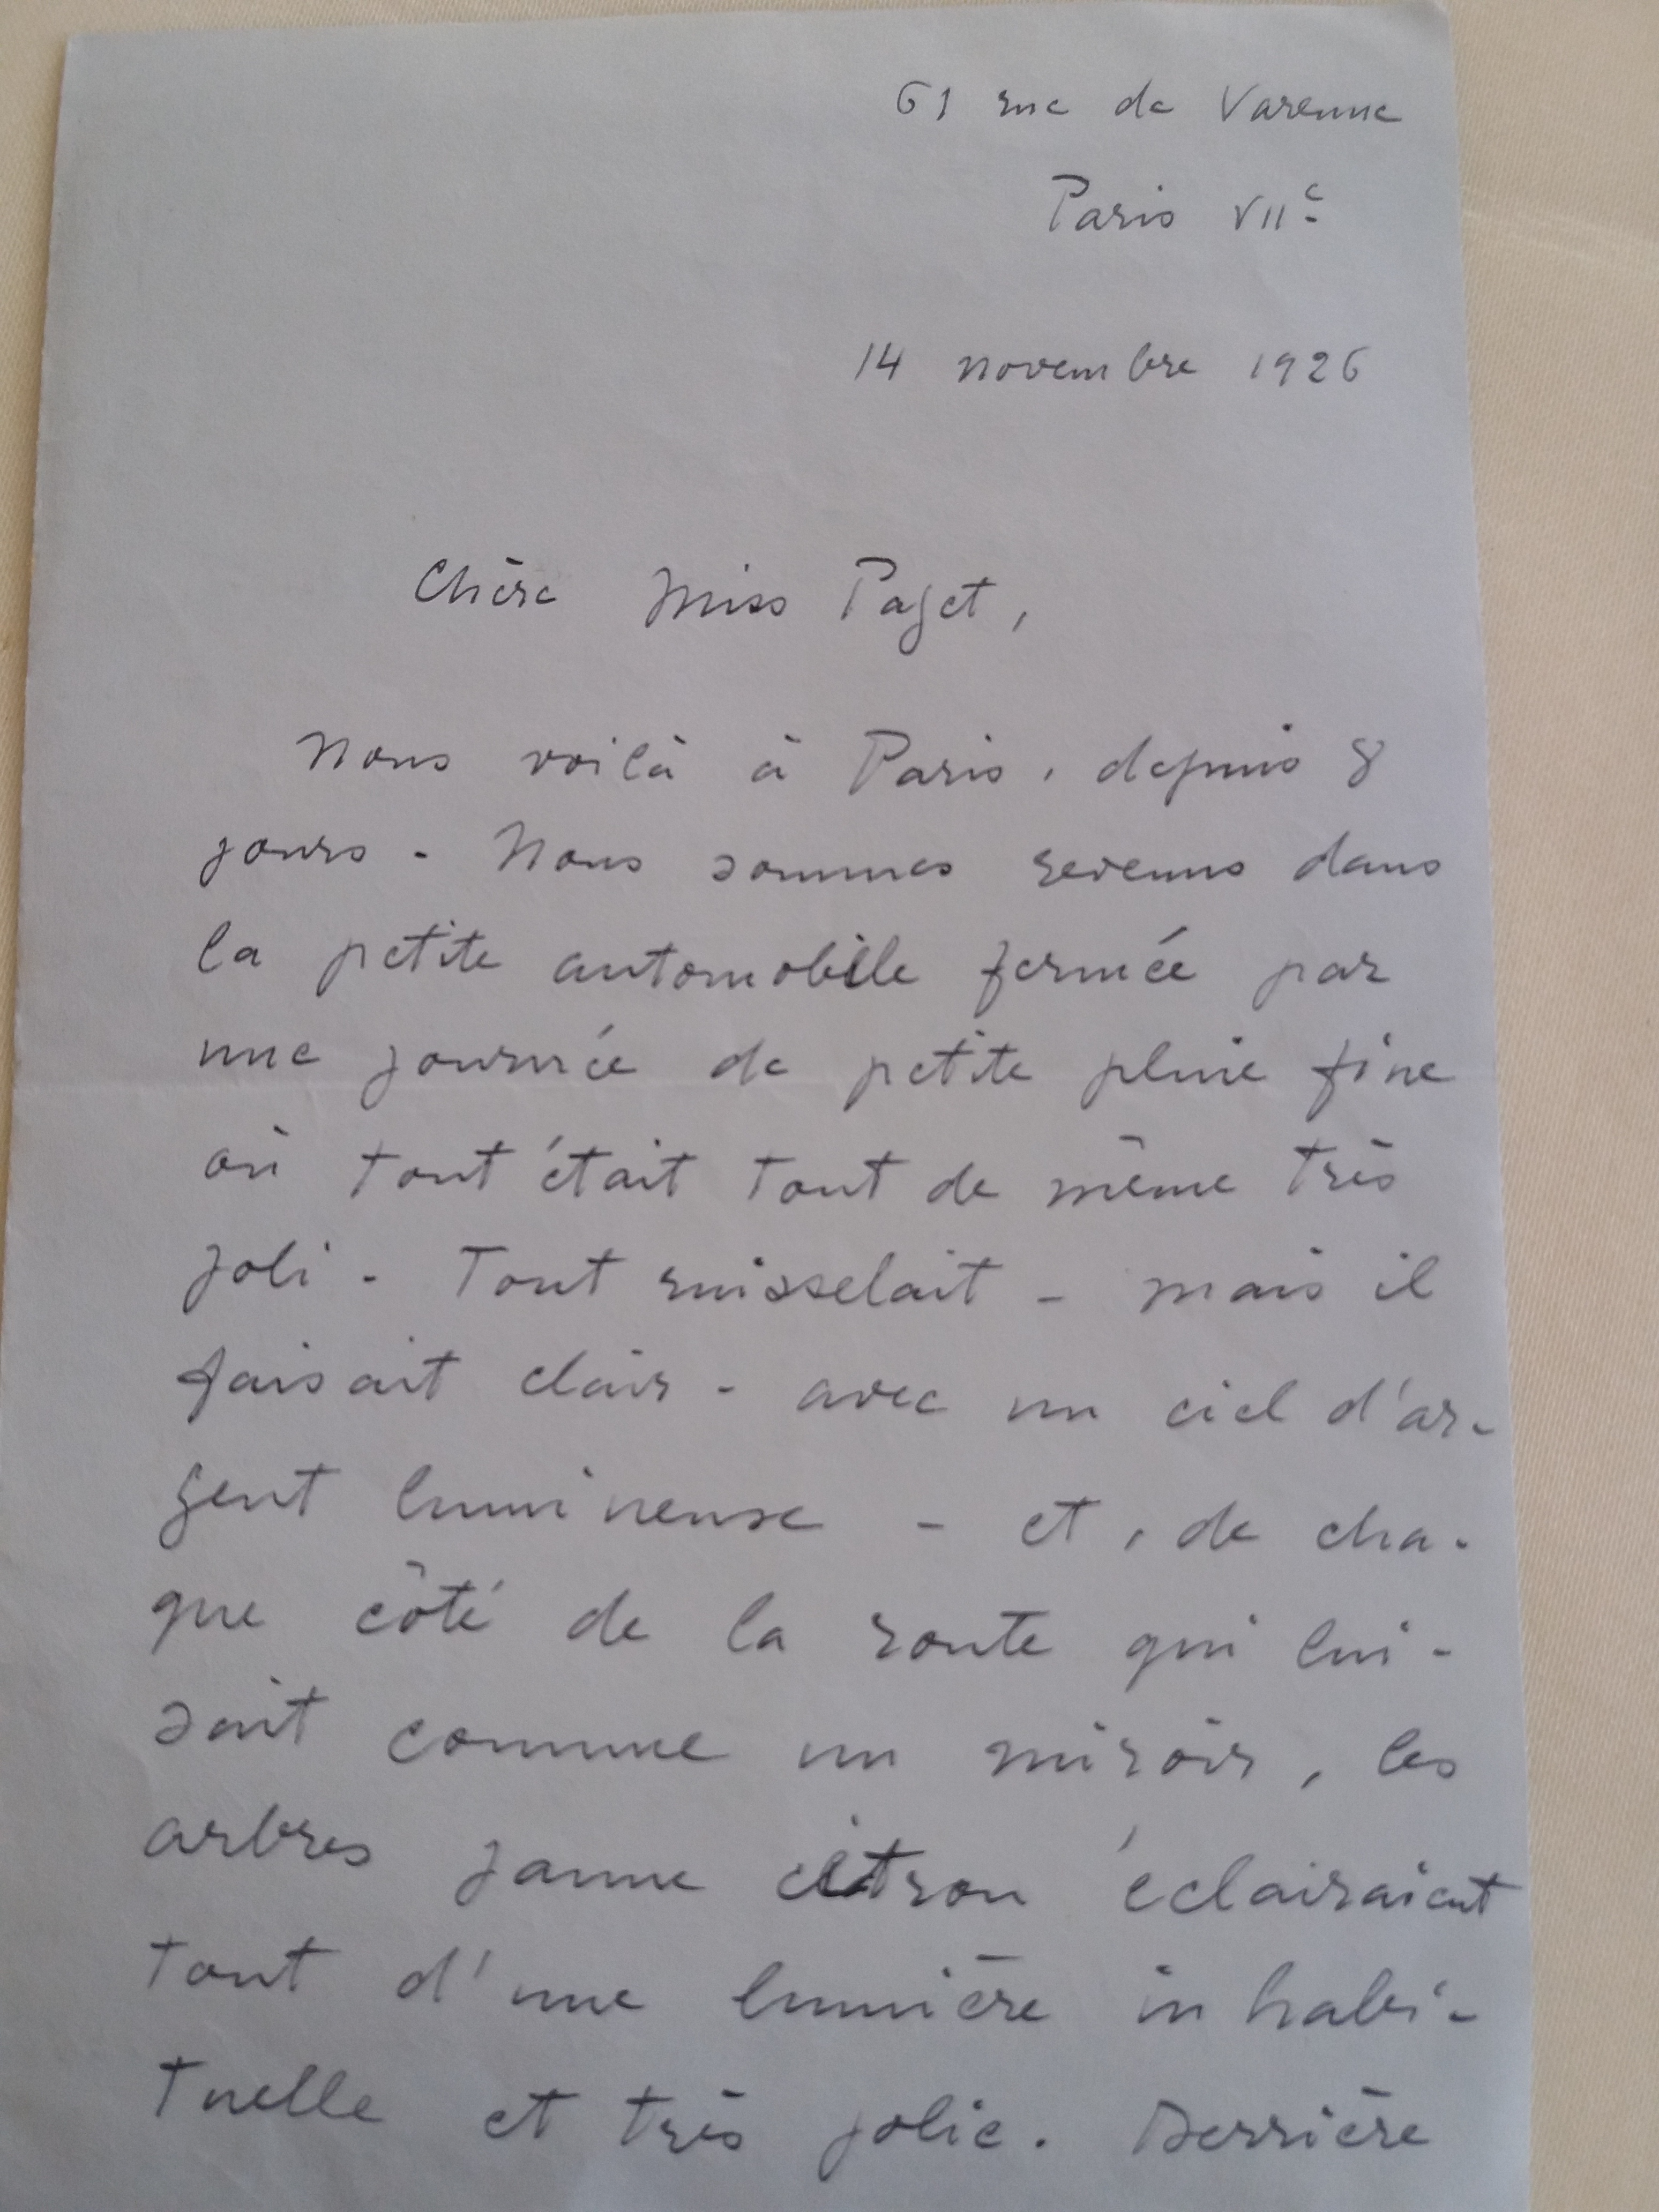 61 rue de Varenne
Paris VIIe
14 novembre 1926
Chère Miss Paget,
Nous voilà à Paris, depuis 8
jours - Nous sommes revenus dans
la petite automobile fermée par
une journée de petite pluie fine
où tout était tout de même très
joli - Tout ruisselait - mais il
faisait clair - avec un ciel d'ar-
gent lumineuse - et, de cha-
que côté de la route qui lui-
sait comme un miroir, les
arbres jaune citron éclairaient
tout d'une lumière inhabi-
tuelle et très jolie. Derrière